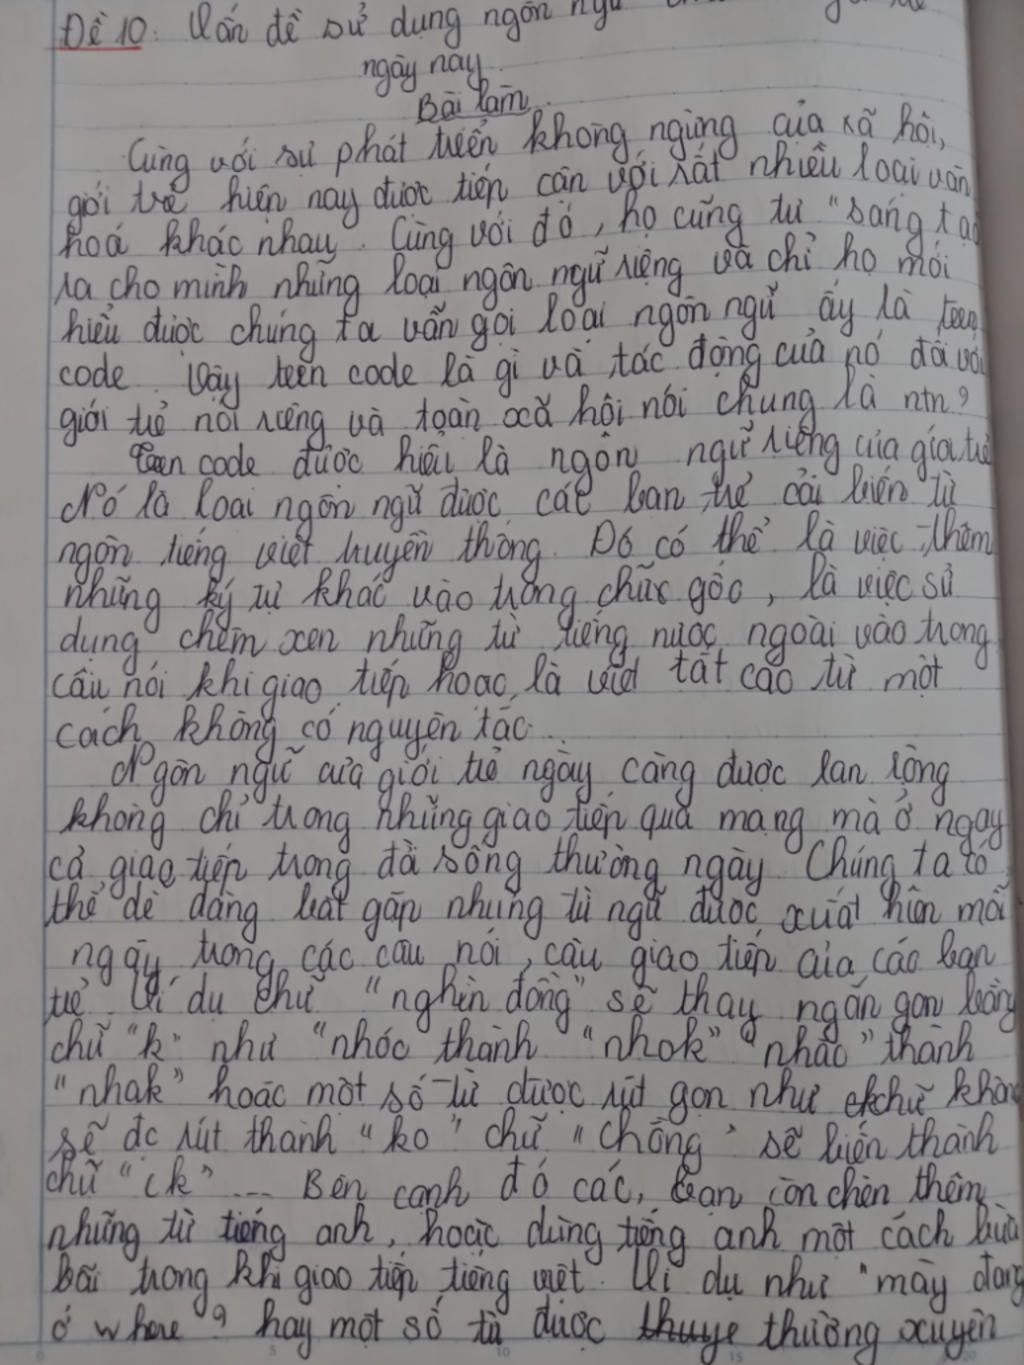 Đề 10: Vấn đề sử dụng ngôn ngữ
ngày nay.
Bài làm.
Cùng với sự phát triển không ngừng của xã hội,
giới trẻ hiện nay được tiếp cận với rất nhiều loại văn
hoá khác nhau. Cùng với đó, họ cũng tự "sáng tạo
ra cho mình những loại ngôn ngữ riêng và chỉ họ mới
hiểu được chúng ta vẫn gọi loại ngôn ngữ ấy là teen
code. Vậy teen code là gì và tác động của nó đối với
giới trẻ nói riêng và toàn xã hội nói chung là ntn?
Teen code được hiểu là ngôn ngữ riêng của giới trẻ
Nó là loại ngôn ngữ được các bạn trẻ cải biến từ
ngôn tiếng việt truyền thống. Đó có thể là việc thêm
những ký tự khác vào trong chữ gốc, là việc sử
dụng chêm xen những từ tiếng nước ngoài vào trong
câu nói khi giao tiếp hoặc là viết tắt các từ một
cách không có nguyên tắc...
Ngôn ngữ của giới trẻ ngày càng được lan rộng
không chỉ trong những giao tiếp qua mạng mà ở ngay
cả giao tiếp trong đời sống thường ngày. Chúng ta có
thể dễ dàng bắt gặp những từ ngữ được xuất hiện mỗi
ngày trong các câu nói, câu giao tiếp của các bạn
trẻ. Ví dụ chữ "nghìn đồng" sẽ thay ngắn gọn bằng
chữ "k" như "nhóc thành "nhok" "nhạc" thành
"nhak" hoặc một số từ được rút gọn như chữ không
sẽ đc rút thành "ko" chữ "chồng" sẽ biến thành
chữ "ck" ... Bên cạnh đó các, bạn còn chèn thêm
những từ tiếng anh, hoặc dùng tiếng anh một cách bừa
bãi trong khi giao tiếp tiếng việt. Ví dụ như "mày đang
ở where? hay một số từ được thường xuyên